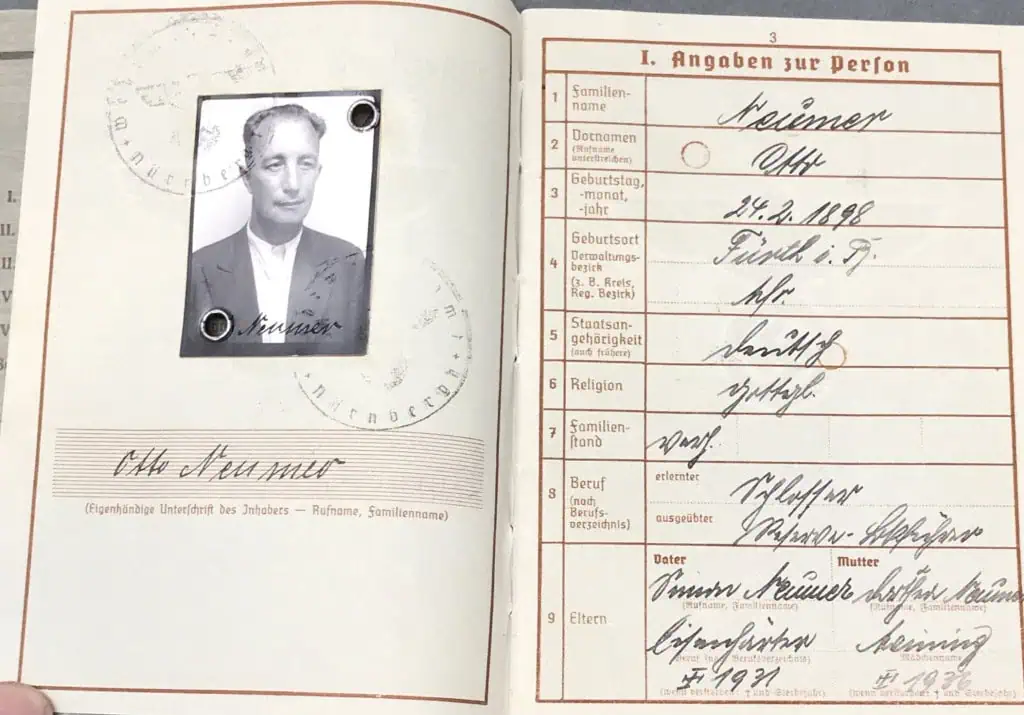 I.
II.
Nürnberg
Neumer
Nürnberg
Otto Neumer
(Eigenhändige Unterschrift des Inhabers — Rufname, Familienname)
3
I. Angaben zur Person
1 Familien-
name
Neumer
2 Vornamen
(Rufname
unterstreichen)
Otto
3 Geburtstag,
-monat,
-jahr
24.2.1898
4 Geburtsort
Verwaltungs-
bezirk
(z. B. Kreis,
Reg. Bezirk)
Fürth i.
5 Staatsan-
gehörigkeit
(auch frühere)
deutsch
6 Religion
gottgl.
7 Familien-
stand
verh.
8 Beruf
(nach
Berufs-
verzeichnis)
erlernter
Schlosser
ausgeübter
Reserve-
9 Eltern
Vater
Neumer
(Rufname, Familienname)
Mutter
Neumer
(Rufname, Familienname)
1931
(wenn verstorben † und Sterbejahr)
Mädchenname
1936
(wenn verstorben † und Sterbejahr)